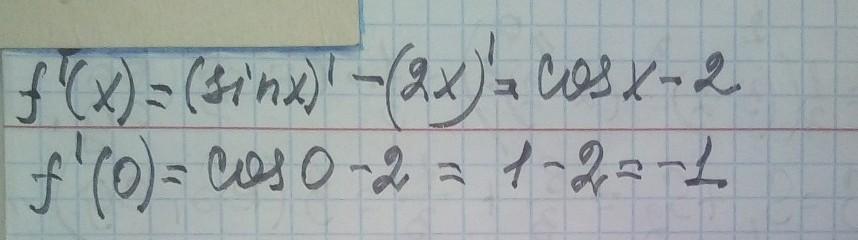 f'(x) = (sinx)' - (2x)' = cosx - 2
f'(0) = cos0 - 2 = 1 - 2 = -1